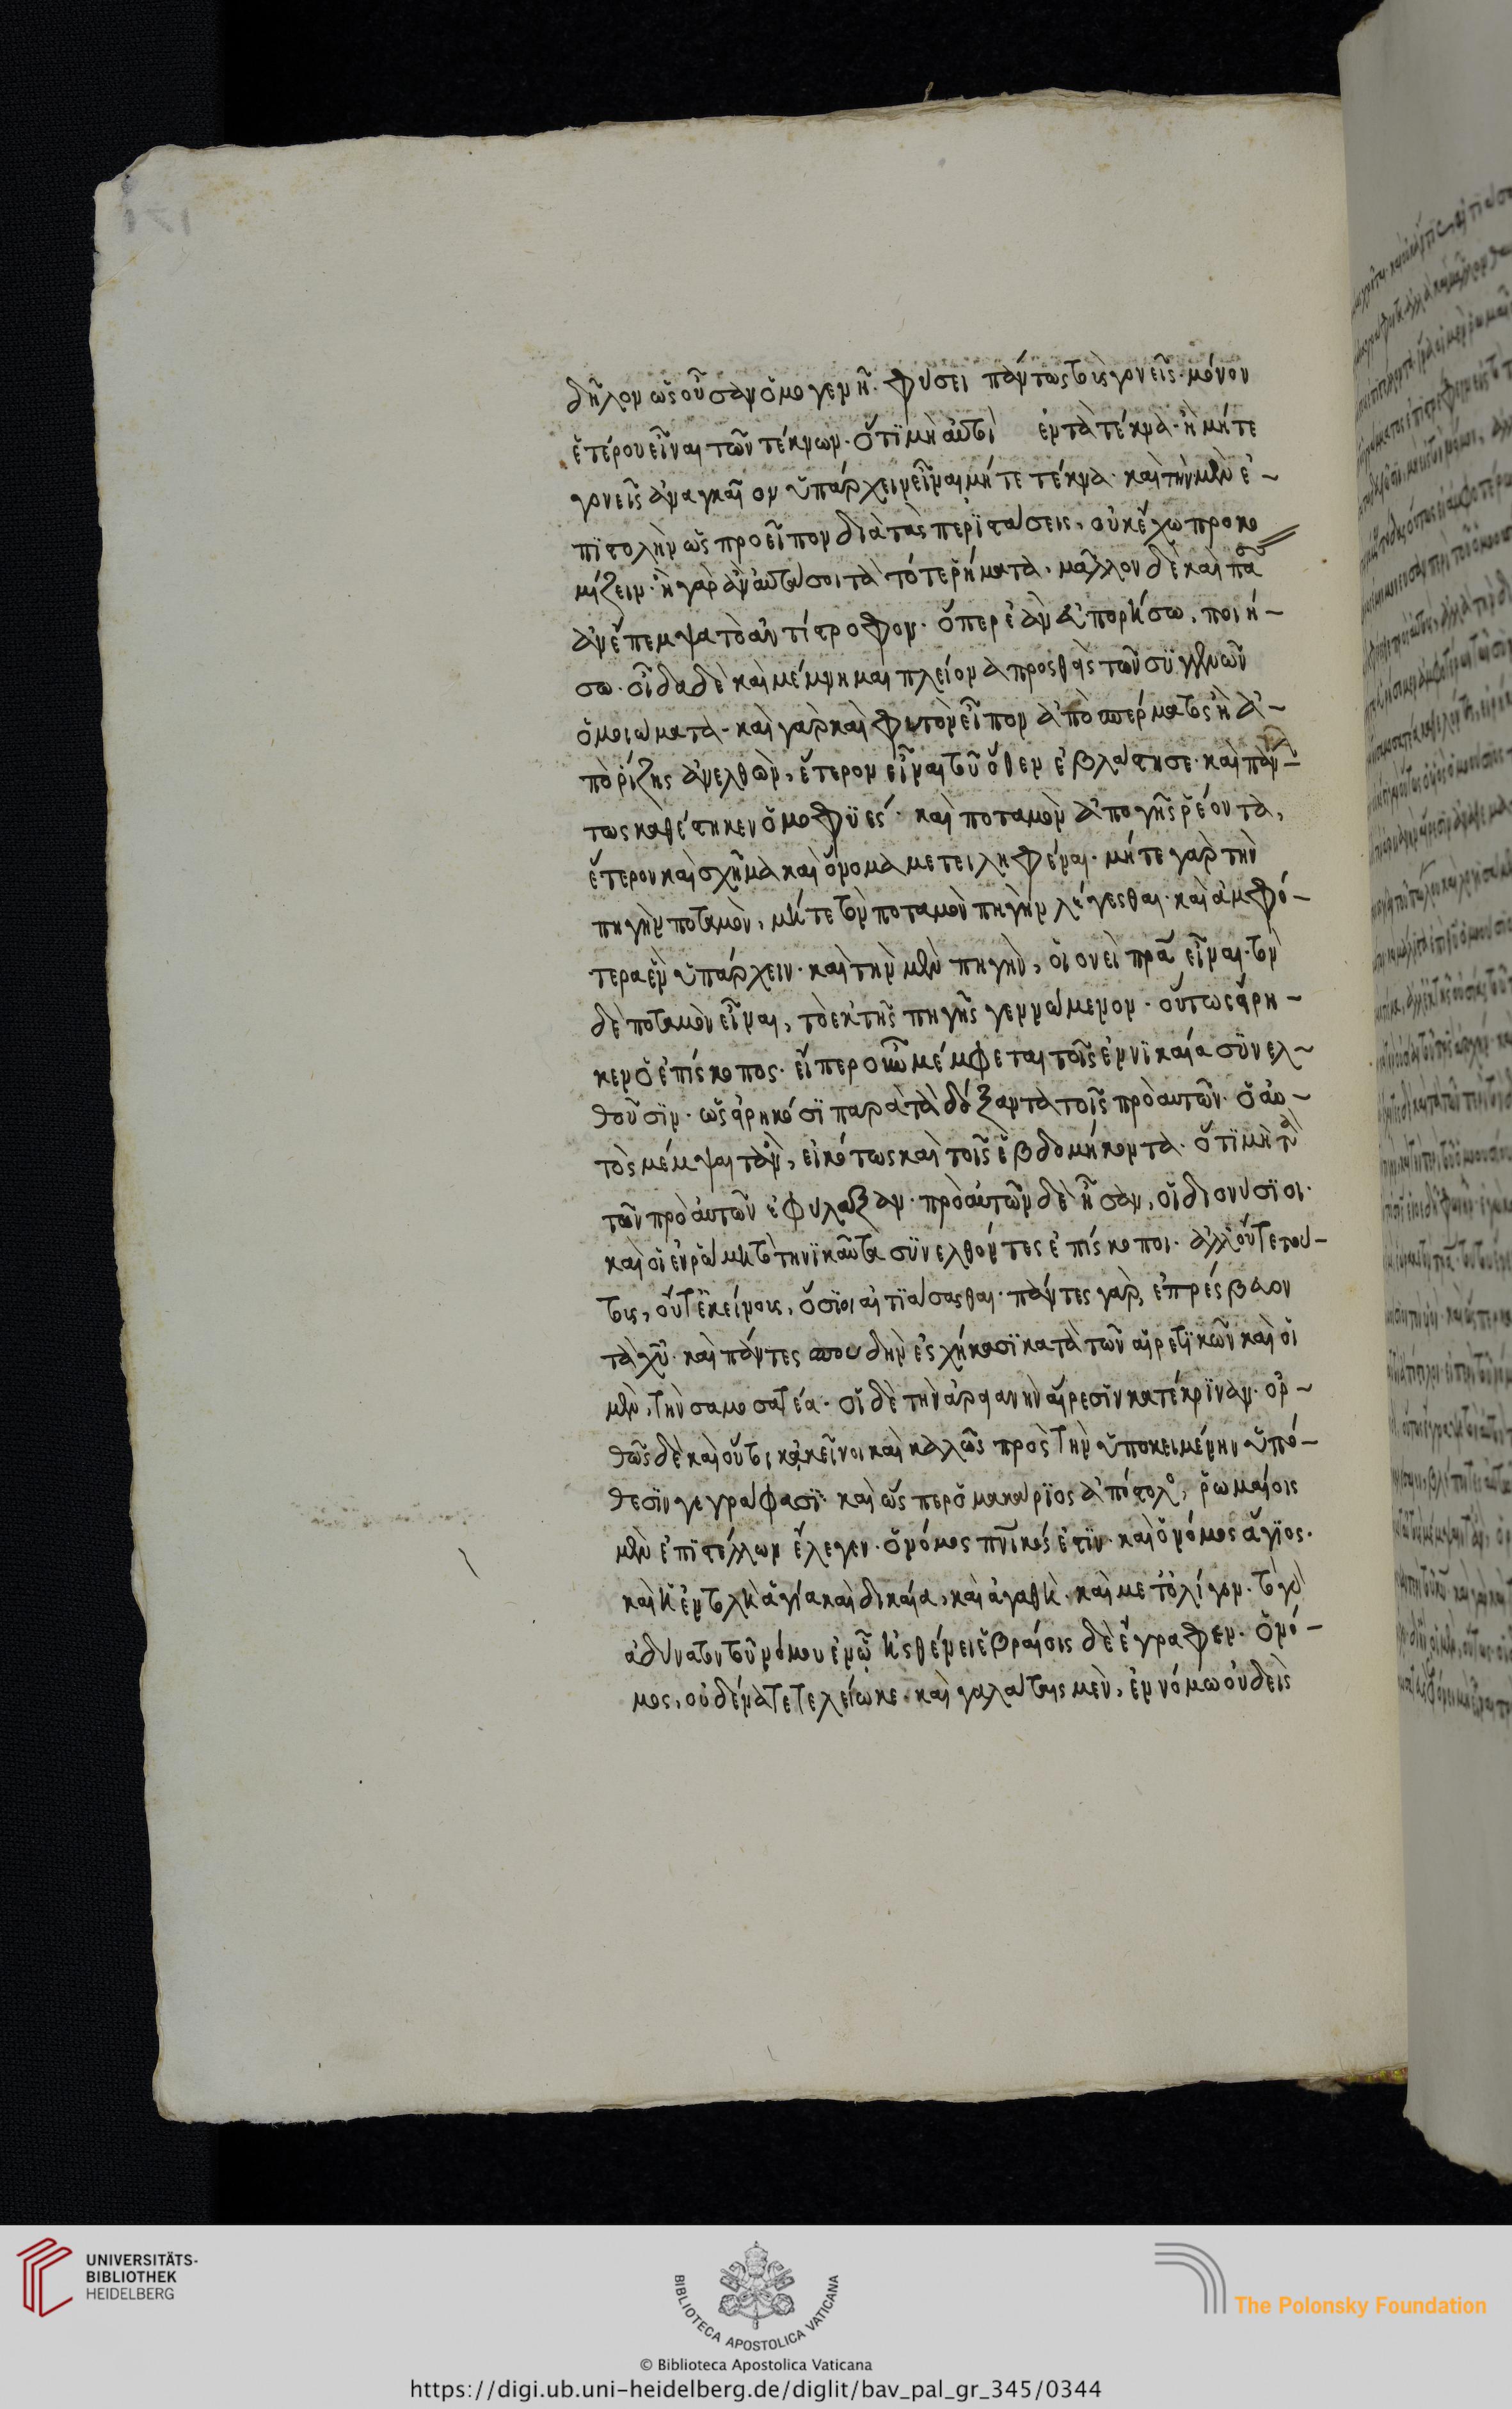 δῆλον ὡς οὖσαν ὁμογενῆ. φύσει πάντως τοὺς γονεῖς. μόνον
ἑτέρους εἶναι τῶν τέκνων. ὅτι μὴ αὐτοὶ εἶεν τὰ τέκνα. ἢ μήτε
γονεῖς ἀναγκαῖον ὑπάρχειν εἶναι μήτε τέκνα. καὶ τὴν μὲν ἐ-
πιστολὴν ὡς προεῖπον διὰ τὰς περιστάσεις, οὐκ ἔχω προκο
μίζειν. ἢ γὰρ ἂν αὐτά σοι τὰ τότε ῥήματα, μᾶλλον δὲ καὶ πᾶσ
ἂν ἔπεμψα τὸ ἀντίστροφον. ὅπερ ἐὰν εὐπορήσω, ποιή-
σω. οἶδα δὲ καὶ μέμνημαι πλείονα προσθεὶς τῶν συγγενῶν
ὁμοιώματα. καὶ γὰρ καὶ φυτὸν εἶπον ἀπὸ σπέρματος ἢ ἀ-
πὸ ῥίζης ἀνελθὸν, ἕτερον εἶναι τοῦ ὅθεν ἐβλάστησε. καὶ πάν-
τως καθέστηκεν ὁμοφυές. καὶ ποταμὸν ἀπο γῆς ῥέοντα,
ἕτερον καὶ σχῆμα καὶ ὄνομα μετειληφέναι. μήτε γὰρ τὴν
πηγὴν ποταμὸν, μήτε τὸν ποταμὸν πηγὴν λέγεσθαι. καὶ ἀμφό-
τερα ἓν ὑπάρχειν. καὶ τὴν μὲν πηγὴν, οἱονεὶ πρα εἶναι. τὸν
δὲ ποταμὸν εἶναι, τὸ ἐκ τῆς πηγῆς γεννώμενον. οὕτως εἴρη-
κεν ὁ ἐπίσκοπος. εἴπερ οὖν μέμφεταί τοῖς ἐν νικαία συνελ-
θοῦσιν. ὡς εἰρηκόσι παρὰ τὰ δόξαντα τοῖς πρὸ αυτῶν. ὁ αὐ-
τὸς μέμψαιτ ἂν, εἰκότως καὶ τοῖς ἑβδομήκοντα. ὅτι μὴ τὰ
τῶν πρὸ αὐτῶν ἐφύλαξαν. πρὸ αὐτῶν δὲ ἦσαν, οἱ διονύσιοι.
καὶ οἱ ἐν ῥώμη τὸ τηνικαῦτα συνελθόντες ἐπίσκοποι. ἀλλ οὔτε τού-
τους, οὔτ ἐκείνους, ὅσιοι αἰτιάσασθαι. πάντες γὰρ, ἐπρέσβευον
τὰ χυ. καὶ πάντες σπουδὴν ἐσχήκασι κατὰ τῶν αἱρετικῶν καὶ οἱ
μὲν, τὸν σαμοσατέα. οἱ δὲ τὴν ἀρειανὴν αἵρεσιν κατέκριναν. ὀρ-
θῶς δὲ καὶ οὗτοι, κἀκεῖνοι καὶ καλῶς πρὸς τὴν ὑποκειμένην ὑπό-
θεσιν γεγράφασι. καὶ ὥσπερ ὁ μακάριος ἀπόστολο, ῥωμαίοις
μὲν ἐπιστέλλων ἔλεγεν. ὁ νόμος πνικός ἐστιν. καὶ ὁ νόμος ἅγιος.
καὶ ἡ ἐντολὴ ἁγία καὶ δικαία, καὶ ἀγαθὴ. καὶ μετ ὀλίγον. τὸ γὰρ
ἀδύνατον τοῦ νόμου ἐν ᾧ ἠσθένει ἑβραίοις δὲ ἔγραφεν. ὁ νό-
μος, οὐδένα τετελείωκε. καὶ γαλάταις μὲν, ἐν νόμω οὐδεὶς
UNIVERSITÄTS-
BIBLIOTHEK
HEIDELBERG
BIBLIOTECA APOSTOLICA VATICANA
The Polonsky Foundation
© Biblioteca Apostolica Vaticana
https://digi.ub.uni-heidelberg.de/diglit/bav_pal_gr_345/0344